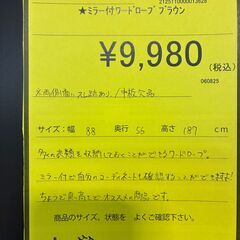 2125110000013628
★ミラー付ワードローブ ブラウン
¥9,980 (税込)
060825
×両側面スレ跡あり/中板欠品
サイズ:幅 88 奥行 56 高さ 187 cm
多くの衣類を収納しておくことができるワードローブ。
ミラー付で自分のコーディネートも確認することができますよ!
ちょっとで良い商でオススメの商品です。
商品のサイズ、状態を よくご確認下さい。